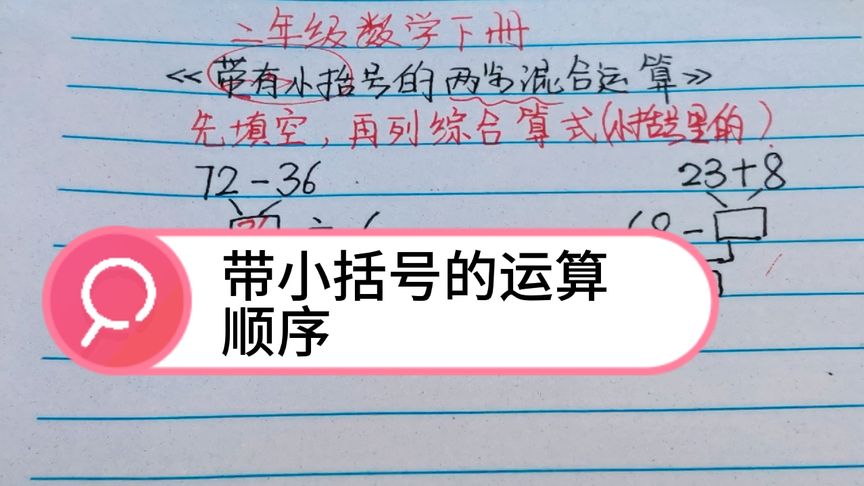 二年级数学下册
《带有小括号的两步混合运算》
先填空，再列综合算式(小括号里的)
72-36 23+8
带小括号的运算
顺序